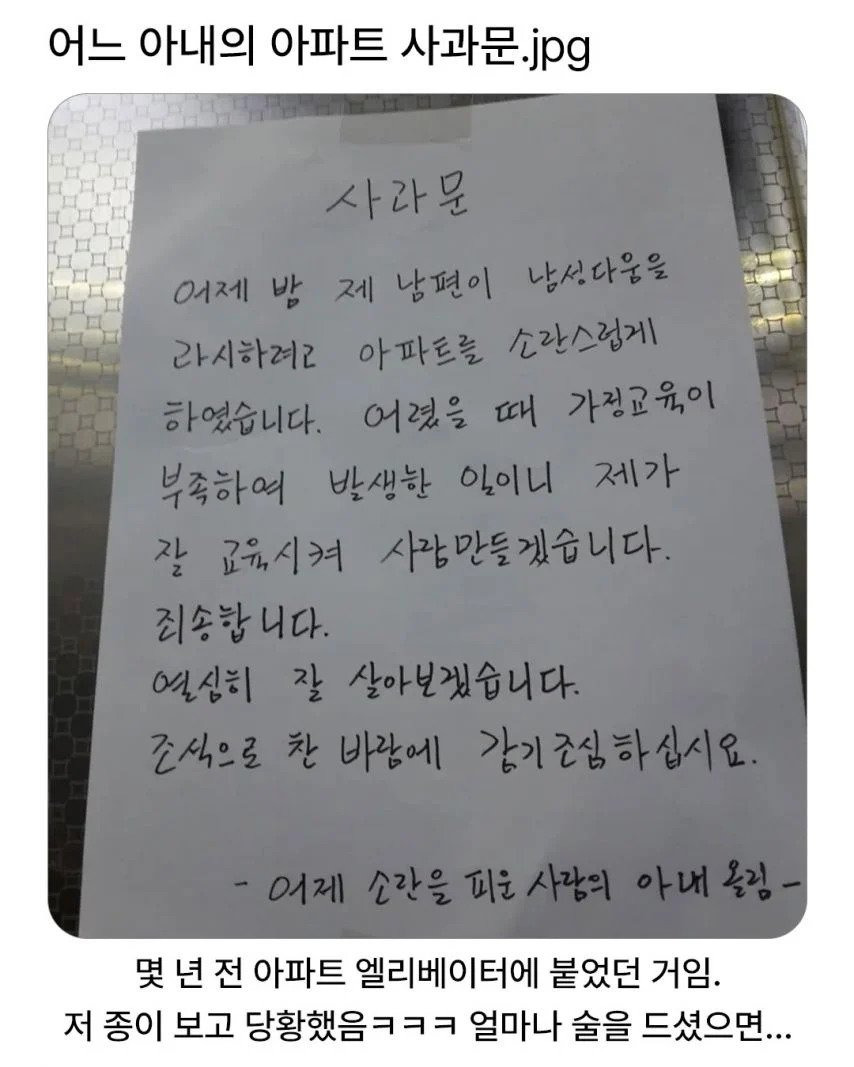 어느 아내의 아파트 사과문.jpg
사과문
어제 밤 제 남편이 남성다움을
과시하려고 아파트를 소란스럽게
하였습니다. 어렸을 때 가정교육이
부족하여 발생한 일이니 제가
잘 교육시켜 사람만들겠습니다.
죄송합니다.
열심히 잘 살아보겠습니다.
조석으로 찬 바람에 감기조심하십시요.
- 어제 소란을 피운 사람의 아내 올림 -
몇 년 전 아파트 엘리베이터에 붙었던 거임.
저 종이 보고 당황했음ㅋㅋㅋ 얼마나 술을 드셨으면...